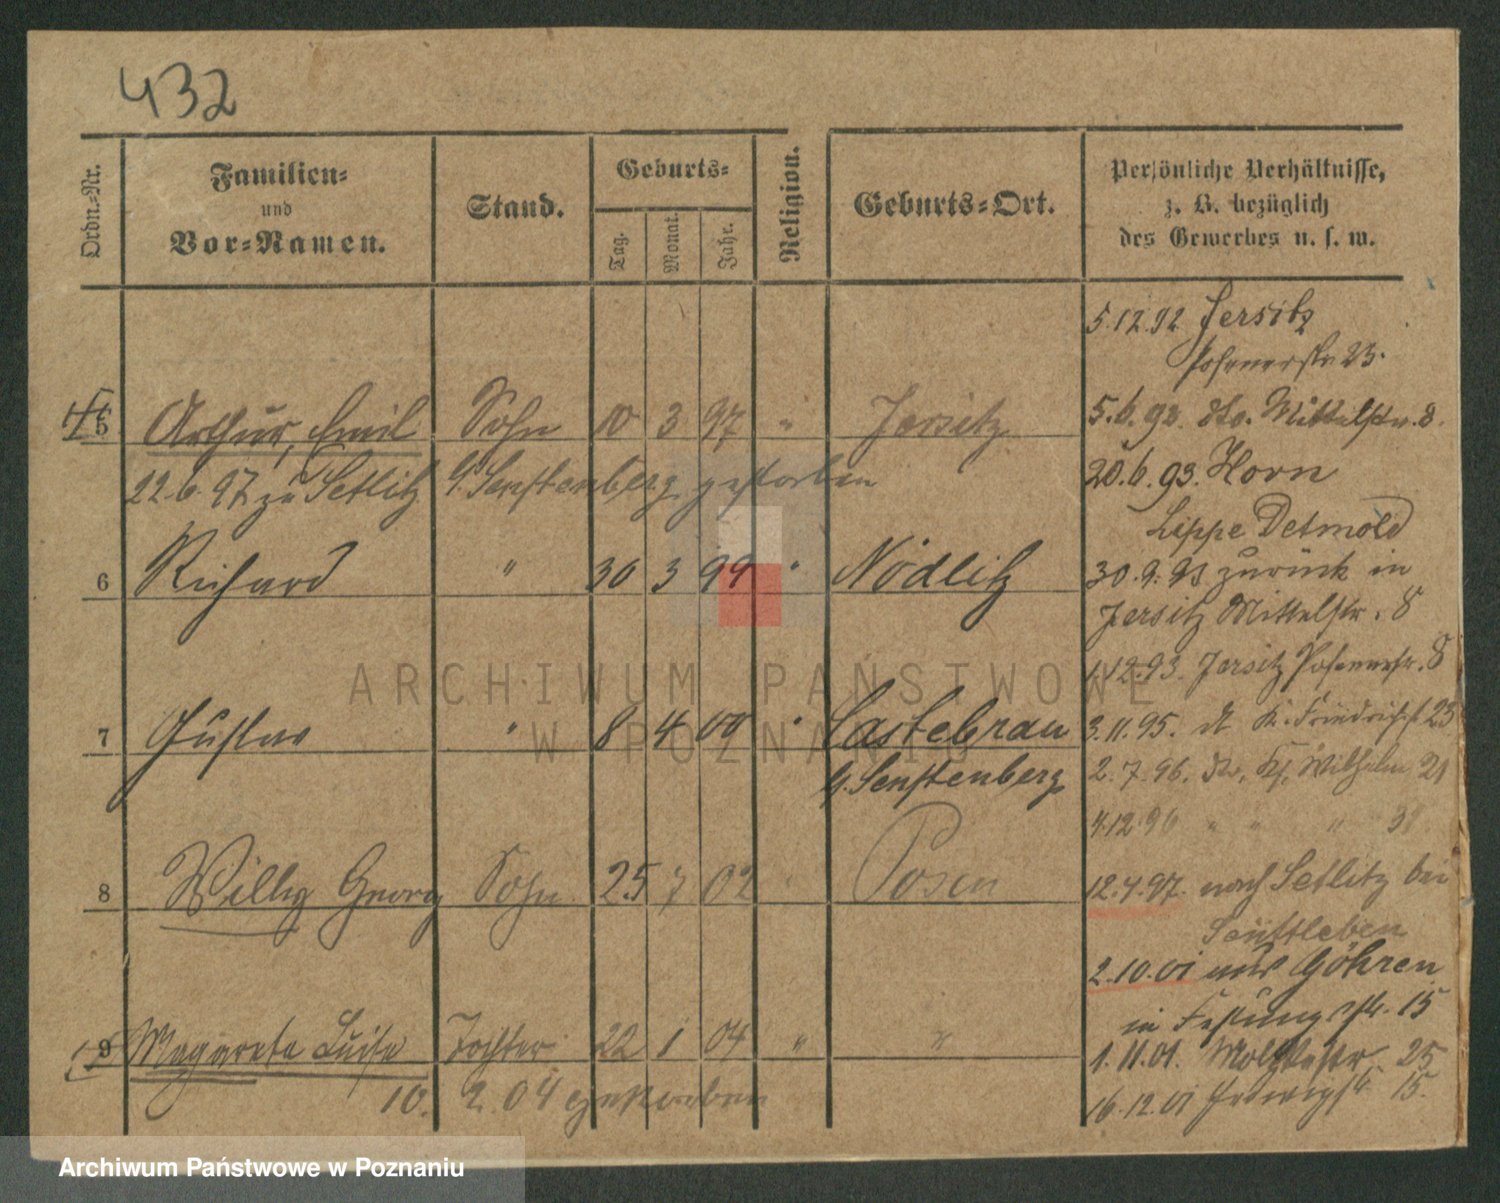 432
Ordn.-Nr.
Familien-
und
Vor-Namen.
Stand.
Geburts-
Tag.
Monat.
Jahr.
Religion.
Geburts-Ort.
Persönliche Verhältnisse,
z. B. bezüglich
des Gewerbes u. s. w.
5.12.92 Jersitz
Posenerstr. 23.
5 Arthur, Emil Sohn 10 3 97 " Jersitz
5.6.92. dto. Mittelstr. 8.
22.6.97 zu Setlitz b. Senftenberg gestorben
20.6.93. Horn
Lippe Detmold
6 Richard " 30 3 99 " Nödlitz
30.9.93 zurück in
Jersitz Mittelstr. 8
1.12.93. Jersitz Posenerstr. 8
7 Gustav " 8 4 00 " Costebrau
b. Senftenberg
3.11.95. Friedrichst 23
2.7.96. Wilhelm 21
4.12.96 " " " 31.
8 Willy Georg Sohn 25 7 02 " Posen
12.4.97. nach Setlitz bei
Senftleben
2.10.01 aus Göhren
in Festungstr. 15
9 Magareta Luise Tochter 22 1 04 " "
10. 2.04 gestorben
1.11.01. Moltkestr. 25
16.12.01 15.
ARCHIWUM PAŃSTWOWE
W POZNANIU
Archiwum Państwowe w Poznaniu